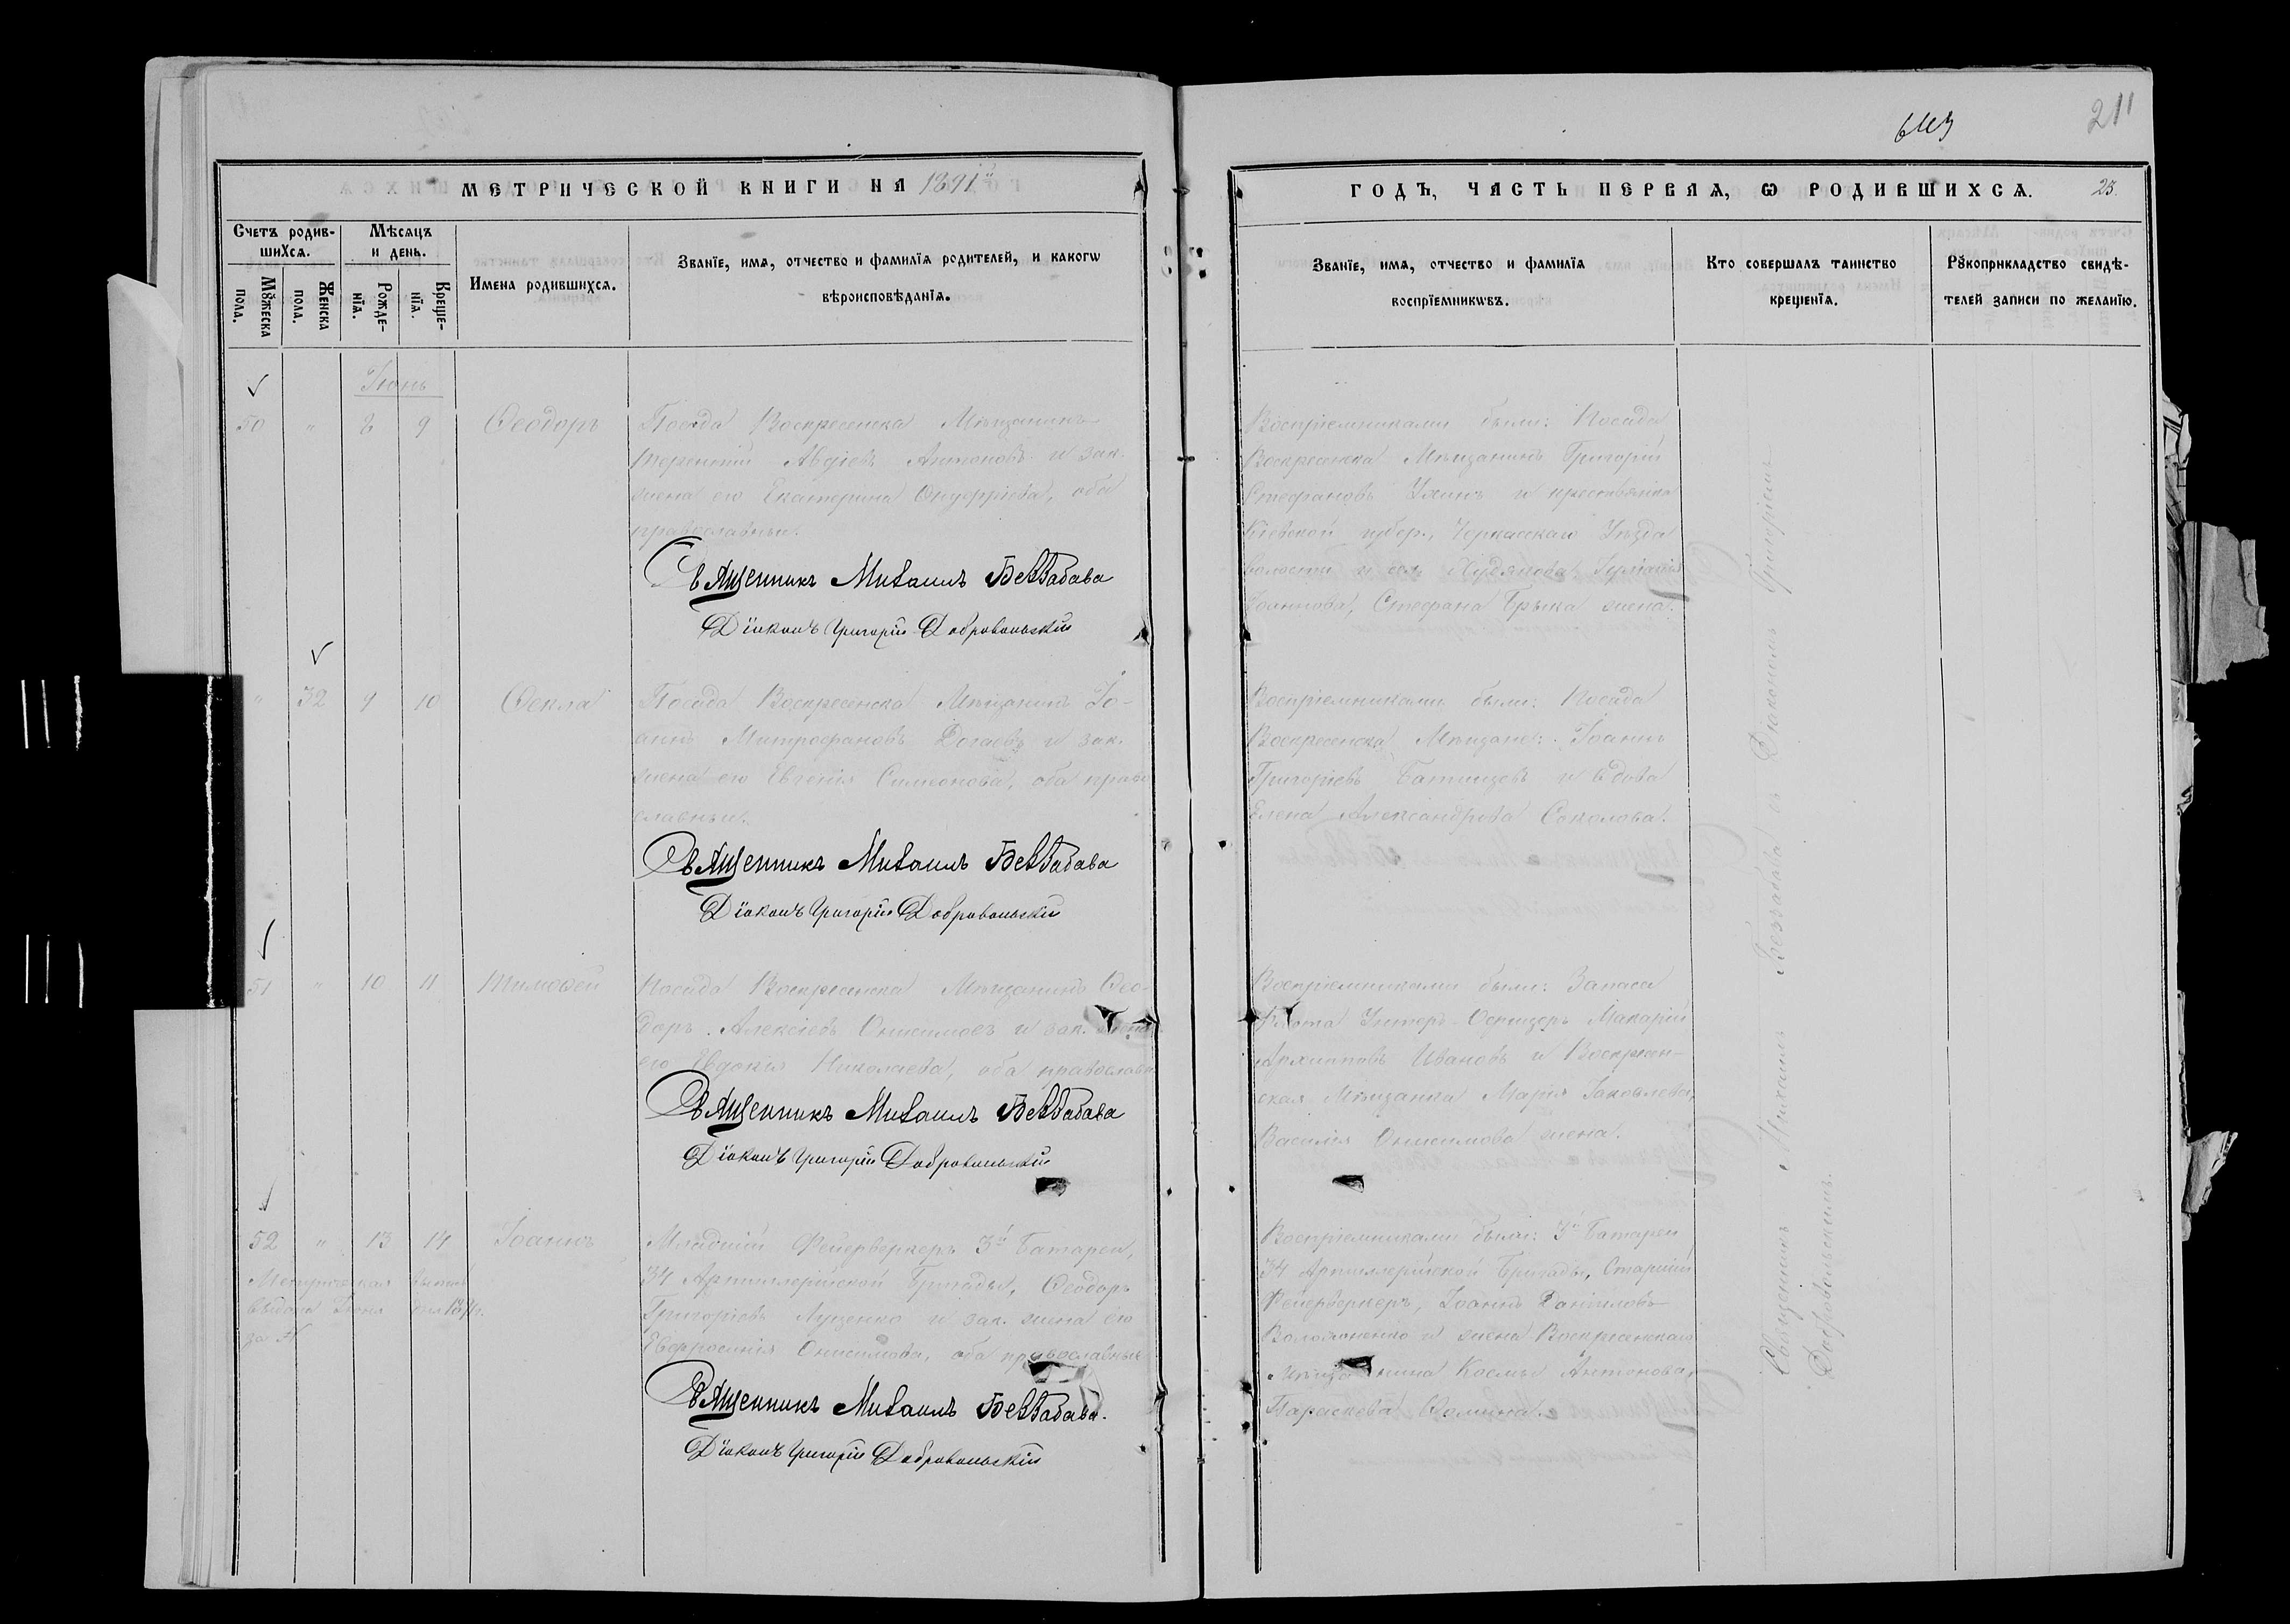 211
МЕТРИЧЕСКОЙ КНИГИ НА 1891й
ГОДЪ, ЧАСТЬ ПЕРВАЯ, Ѡ РОДИВШИХСѦ. 25.
Счетъ родив-
шихсѧ.
Мѣсѧцъ
и день.
Мꙋжеска
пола.
Женска
пола.
Рожде-
нїѧ.
Креще-
нїѧ.
Имена родившихсѧ.
Званїе, имѧ, отчество и фамилїѧ родителей, и какогѡ
вѣроисповѣданїѧ.
Званїе, имѧ, отчество и фамилїѧ
воспрїемникѡвъ.
Кто совершалъ таинство
крещенїѧ.
Рꙋкоприкладство свидѣ-
телей записи по желанїю.
Іюнь
50 " 8 9 Ѳеодоръ
Посада Воскресенска Мѣщанинъ
Терентій Авдіевъ Антоновъ и зак.
жена его Екатерина Онуфріева, оба
православные.
Священникъ Михаилъ Беззабава
Діаконъ Григорій Добровольскій
Воспріемниками были: Посада
Воскресенска Мѣщанинъ Григорій
Стефановъ и крестьянка
Кіевской губер., Черкасскаго Уѣзда
волости и сел.
Іоаннова, Стефана жена.
" 32 9 10 Ѳекла
Посада Воскресенска Мѣщанинъ Іо-
аннъ Митрофановъ и зак.
жена его Евгенія Симеонова, оба право
славные.
Священникъ Михаилъ Беззабава
Діаконъ Григорій Добровольскій
Воспріемниками были: Посада
Воскресенска Мѣщане: Іоаннъ
Григоріевъ и вдова
Елена Александрова Соколова.
51 " 10 11 Тимоѳей
Посада Воскресенска Мѣщанинъ Ѳео-
доръ Алексіевъ Онисимовъ и зак. жена
его Евдокія Николаева, оба православн.
Священникъ Михаилъ Беззабава
Діаконъ Григорій Добровольскій
Воспріемниками были: Запаса
Флота Унтеръ-Офицеръ Макарій
Архипповъ Ивановъ и Воскресен-
ская Мѣщанка Марія Іаковлева,
Василія Онисимова жена.
52 " 13 14 Іоаннъ
Метрическая
выдана Іюня
за №
Младшій Фейерверкеръ 3й Батареи,
34 Артиллерійской Бригады, Ѳеодоръ
Григоріевъ Луценко и зак. жена его
Евфросинія Онисимова, оба православные
Священникъ Михаилъ Беззабава.
Діаконъ Григорій Добровольскій
Воспріемниками были: 3й Батареи
34 Артиллерійской Бригады, Старшій
Фейерверкеръ, Іоаннъ Даніиловъ
и жена Воскресенскаго
Мѣщанина Космы Антонова,
Параскева Ѳомина.
Священникъ Михаилъ Беззабава съ Діакономъ Григоріемъ
Добровольскимъ.